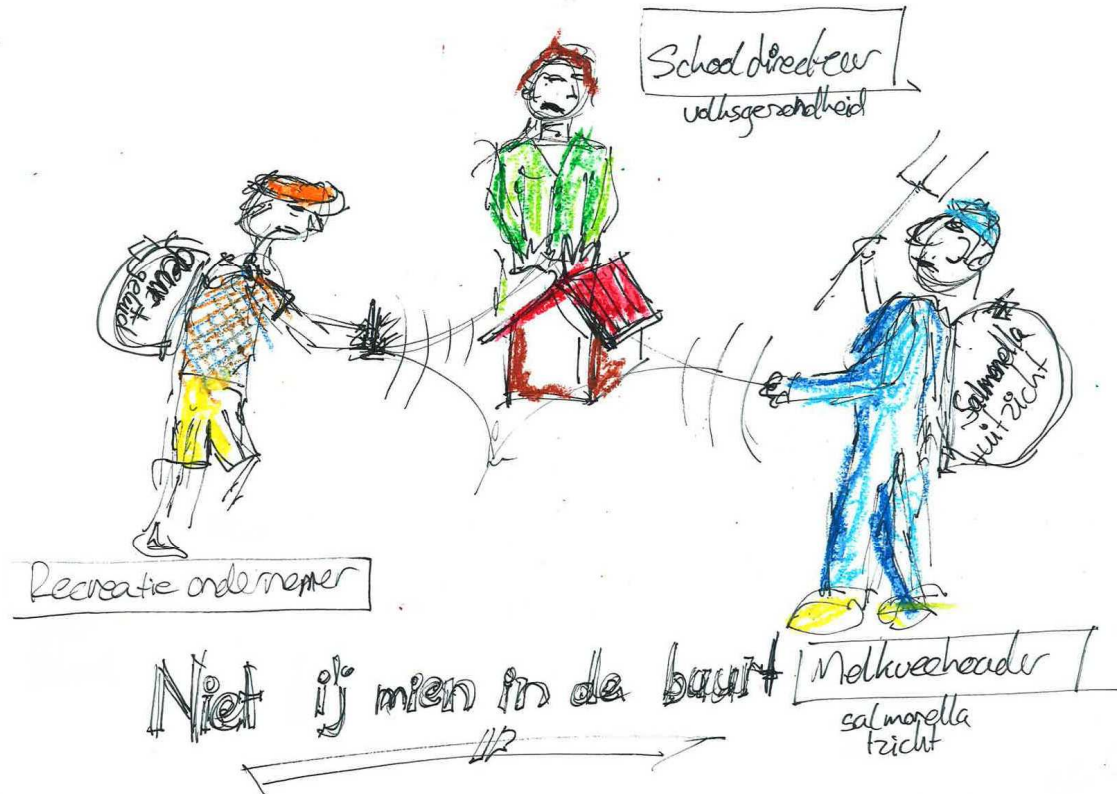 Schooldirecteur
volksgezondheid
geur +
geluid
Salmonella
+ uitzicht
Recreatie ondernemer
Niet ij mien in de buurt
Melkveehouder
salmonella
+zicht